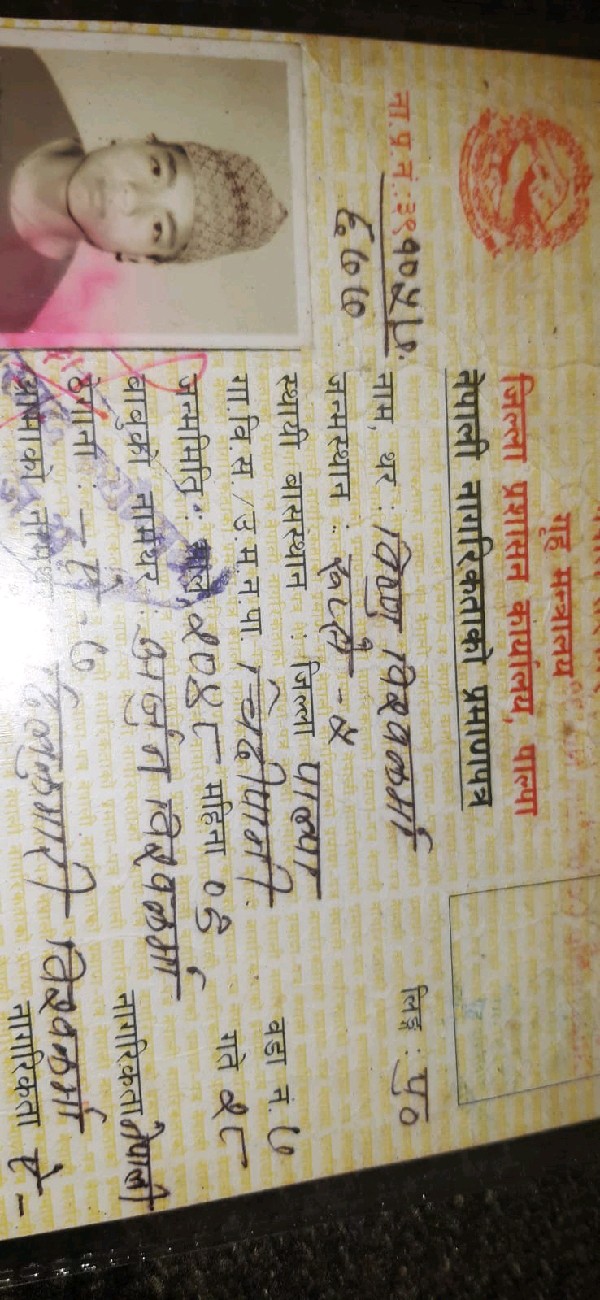 गृह मन्त्रालय
जिल्ला प्रशासन कार्यालय, पाल्पा
नेपाली नागरिकताको प्रमाणपत्र
ना.प्र.नं.:३९१०५७
६७७
नाम, थर : विष्णु विश्वकर्मा लिङ्ग : पु०
जन्मस्थान : रूप्से -५
स्थायी बासस्थान : जिल्ला पाल्पा
गा.वि.स./उ.म.न.पा. चिदीपानी वडा नं. ७
जन्ममिति : साल २०४८ महिना ०६ गते २८
बाबुको नामथर : अर्जुन विश्वकर्मा
ठेगाना : - ऐ - ७ नागरिकता नेपाली
आमाको नामथर : विश्वकर्मा
नागरिकता ऐ -